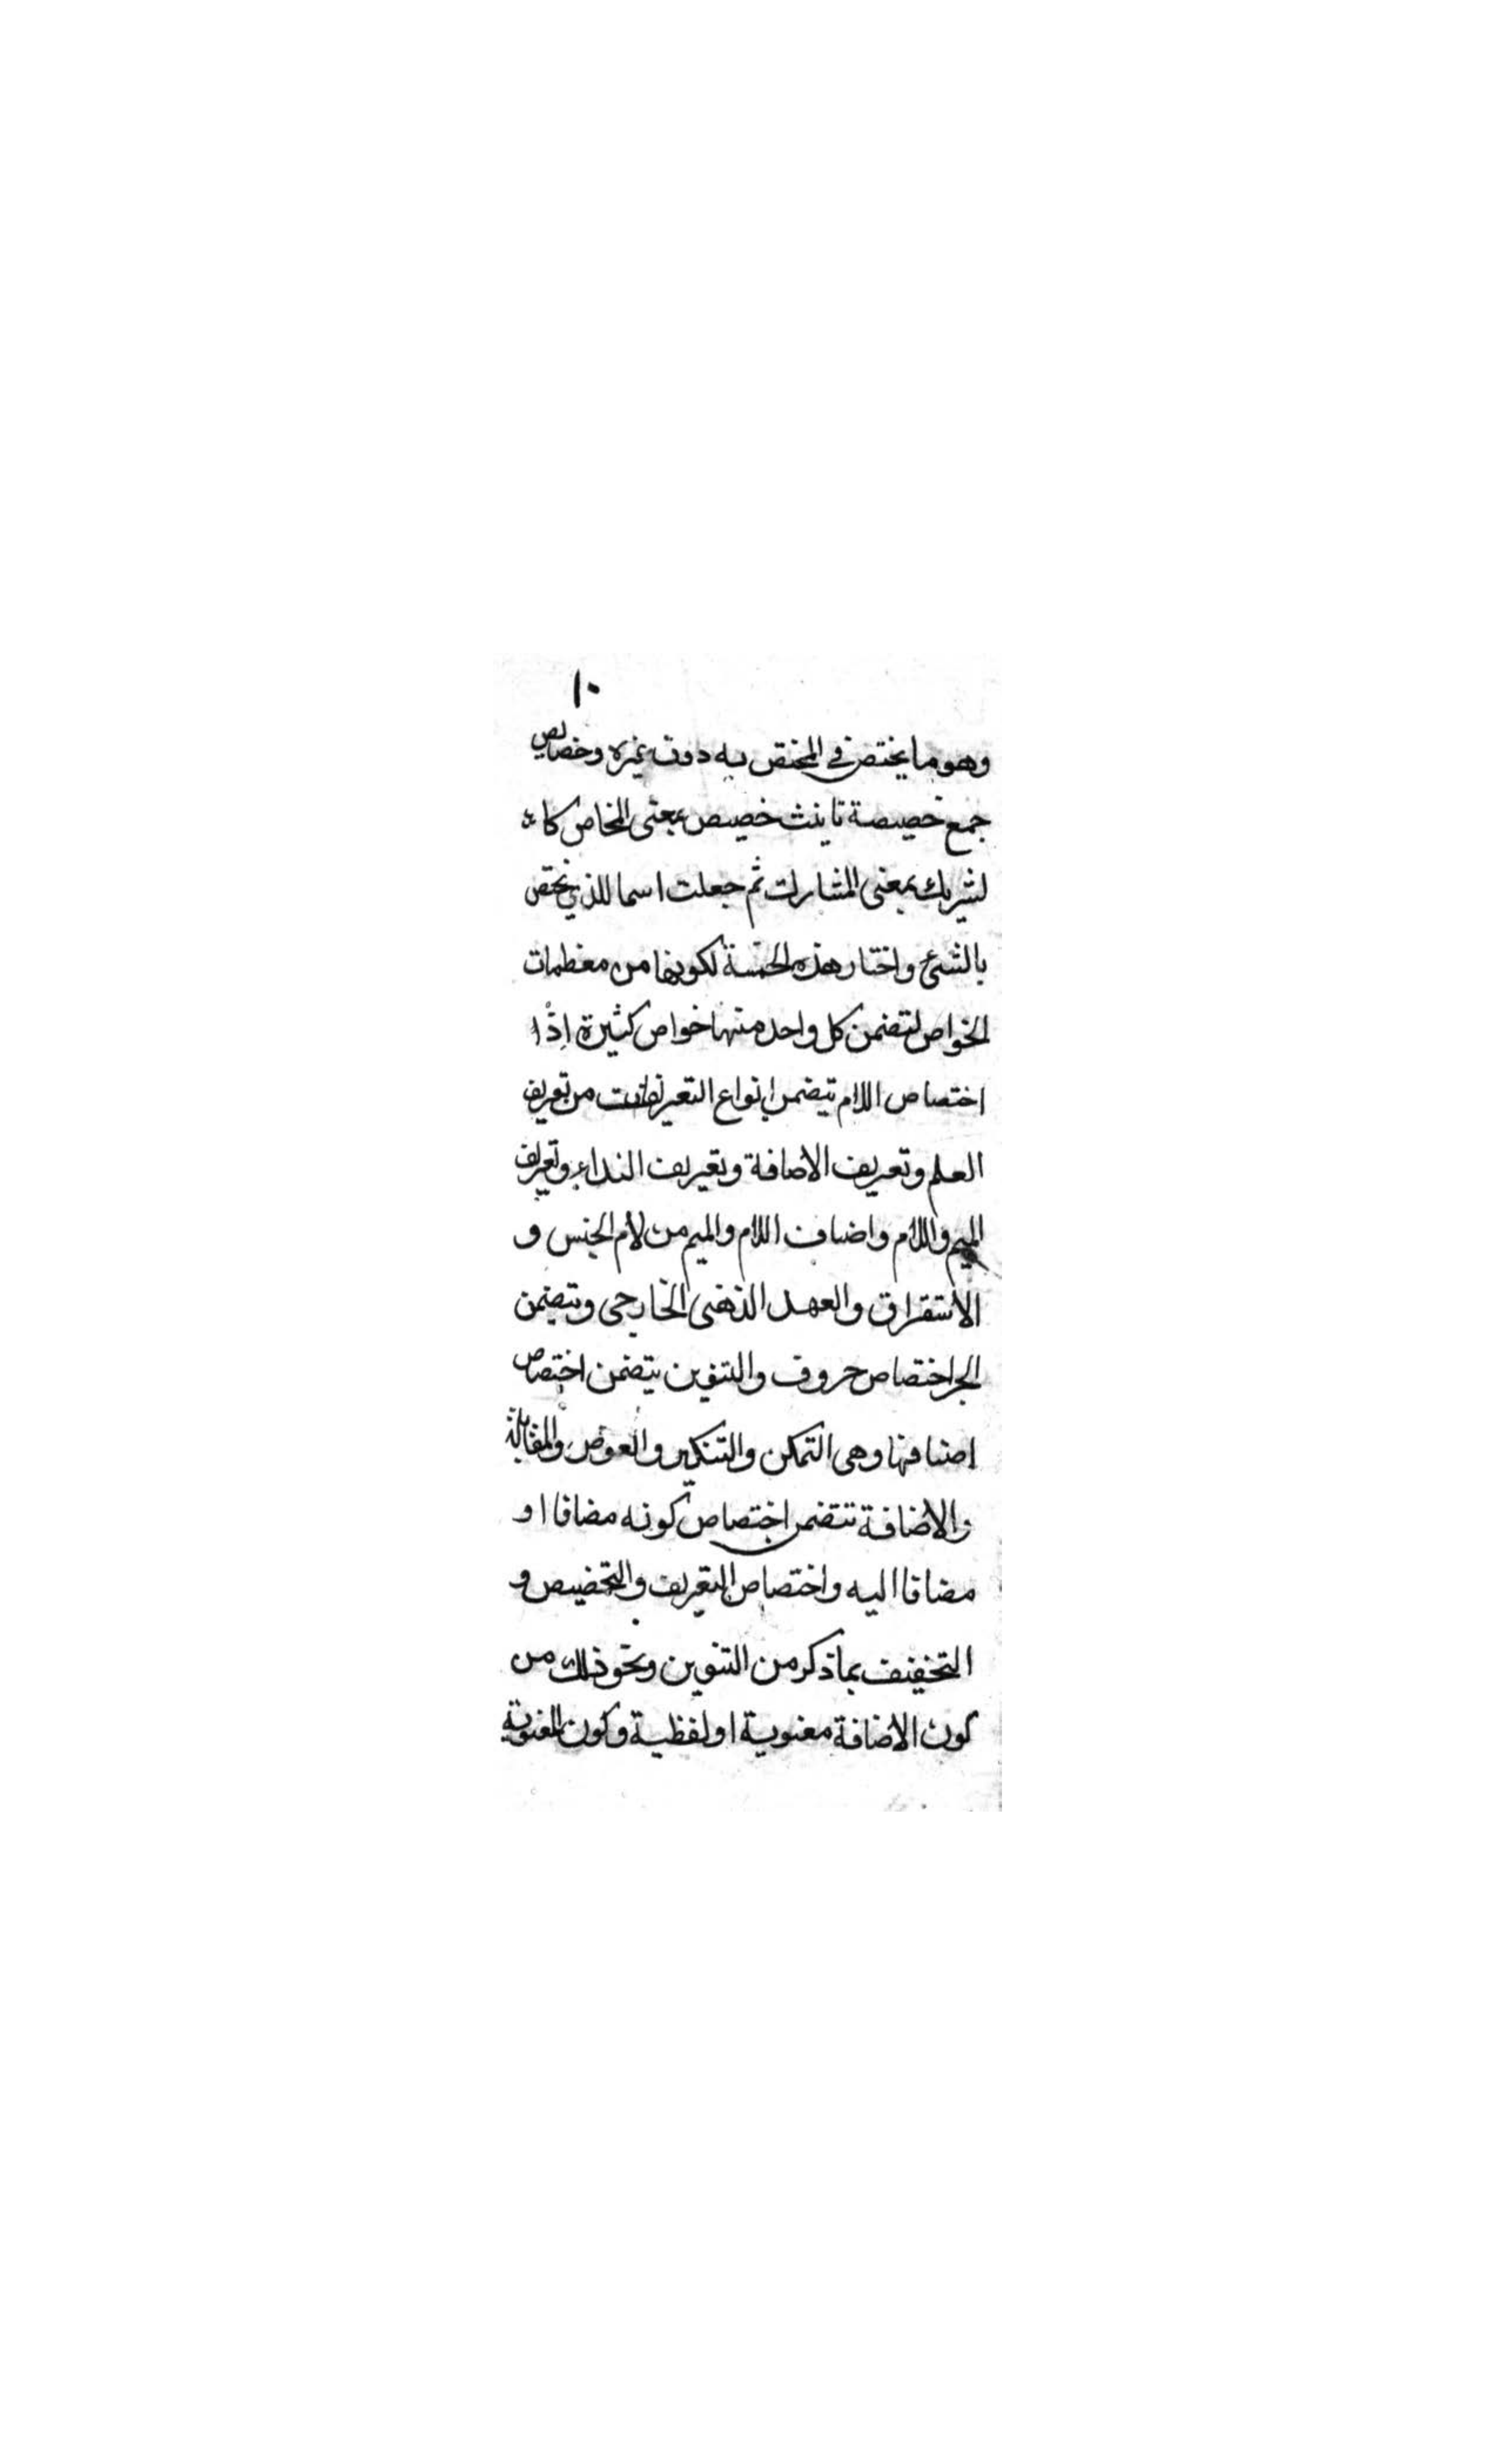 ١٠
وهو ما يختص في المختص به دون غيره وخصايص
جمع خصيصة تانيث خصيص بمعنى الخاص كا
لشريك بمعنى المشارك ثم جعلت اسما للذي يختص
بالشئ واختار هذه الخمسة لكونها من معظمات
الخواص لتضمن كل واحد منها خواص كثيرة اذا
اختصاص اللام يتضمن انواع التعريفات من تعريف
العلم وتعريف الاضافة وتعريف النداء وتعريف
الميم واللام واضاف اللام والميم من لام الجنس و
الاستقراق والعهد الذهنى الخارجى ويتضمن
الجر اختصاص حروف والتنوين يتضمن اختصاص
اصنافها وهى التمكن والتنكير والعوض والمقابلة
والاضافة تتضمن اختصاص كونه مضافا او
مضافا اليه واختصاص التعريف والتخصيص و
التخفيف بما ذكر من التنوين ونحو ذلك من
كون الاضافة معنوية او لفظية وكون المعنوية